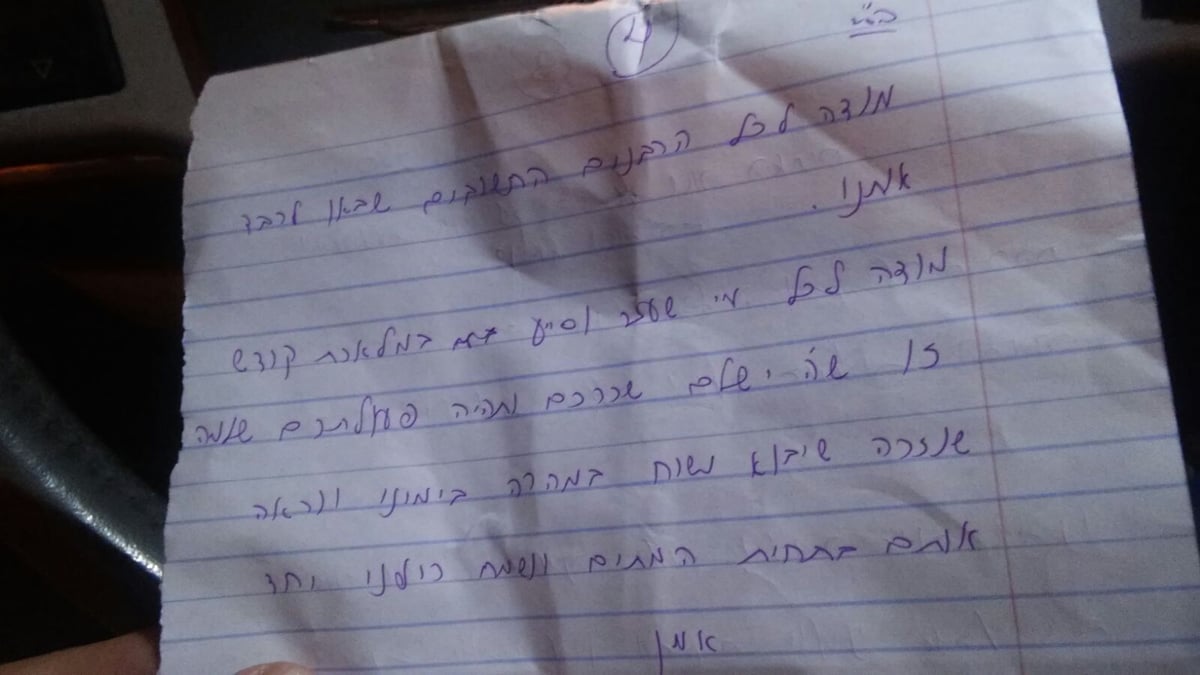 בס"ד
מודה לכל הרבנים החשובים שבאו לכבד
אמנו.
מודה לכל מי שעזר וסייע במלאכת קודש
זו שה' ישלם שכרכם ותהיה פעולתכם שלמה
שנזכה שיבוא משיח במהרה בימינו ונראה
אותם בתחית המתים ונשמח כולנו יחד
אמן